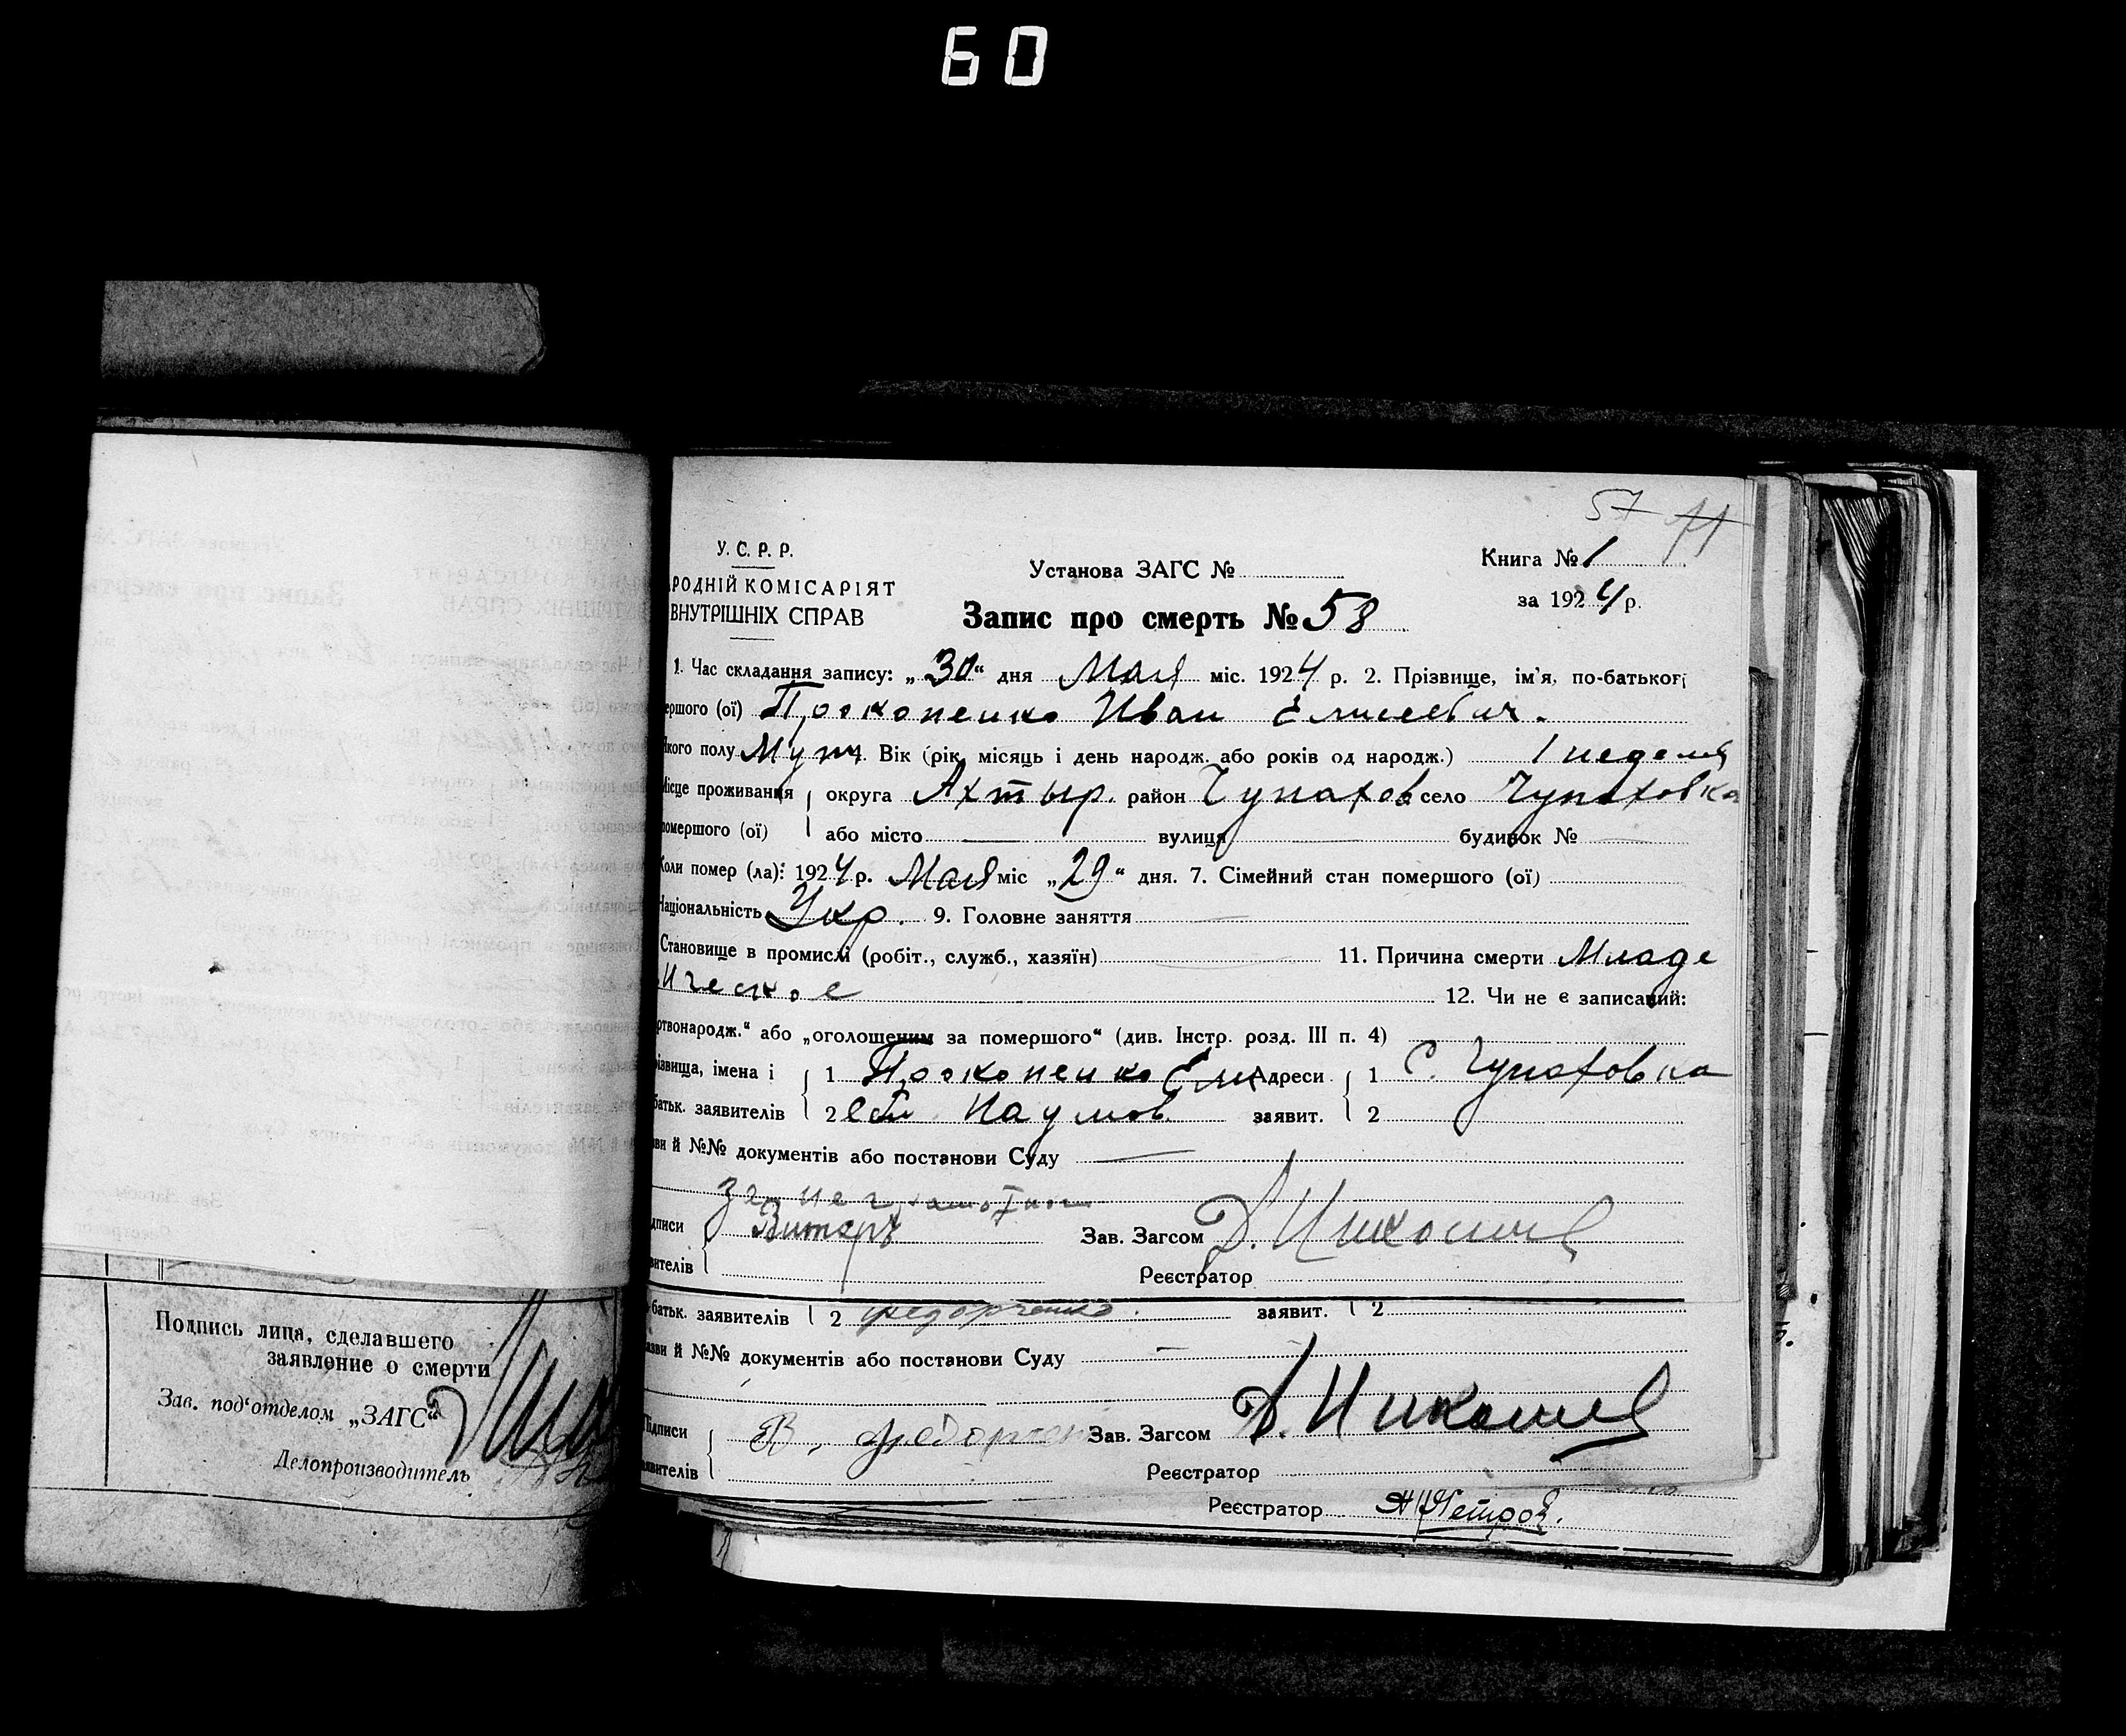 60
57 71
У. С. Р. Р.
РОДНІЙ КОМІСАРІЯТ
ВНУТРІШНІХ СПРАВ
Установа ЗАГС №
Книга № 1
за 1924 р.
Запис про смерть № 58
1. Час складання запису: „30“ дня Мая міс. 1924 р. 2. Прізвище, ім'я, по-батькові
ершого (ої) Прокопенко Иван Елисеевич.
якого полу Муж. Вік (рік, місяць і день народж. або років од народж.) 1 неделя
Місце проживання округа Ахтыр. район Чупахов село Чупаховка
помершого (ої) або місто вулиця будинок №
Коли помер (ла): 1924 р. Мая міс „29“ дня. 7. Сімейний стан помершого (ої)
Національність Укр. 9. Головне заняття
Становище в промислі (робіт., служб., хазяїн) 11. Причина смерти Младе
ическое 12. Чи не є записаний:
ртвонародж.“ або „оголошеним за помершого“ (див. Інстр. розд. III п. 4)
ізвища, імена і 1 Прокопенко Ели Адреси 1 С. Чупаховка
батьк. заявителів 2 сей Наумов. заявит. 2
зви й №№ документів або постанови Суду
за неграмотного
дписи Зав. Загсом
вителів Реєстратор
батьк. заявителів 2 Федорченко. заявит. 2
азви й №№ документів або постанови Суду
Підписи В. Федорчен Зав. Загсом
заявителів Реєстратор
Реєстратор Петров.
Подпись лица, сделавшего
заявление о смерти
Зав. под'отделом „ЗАГС“
Делопроизводитель